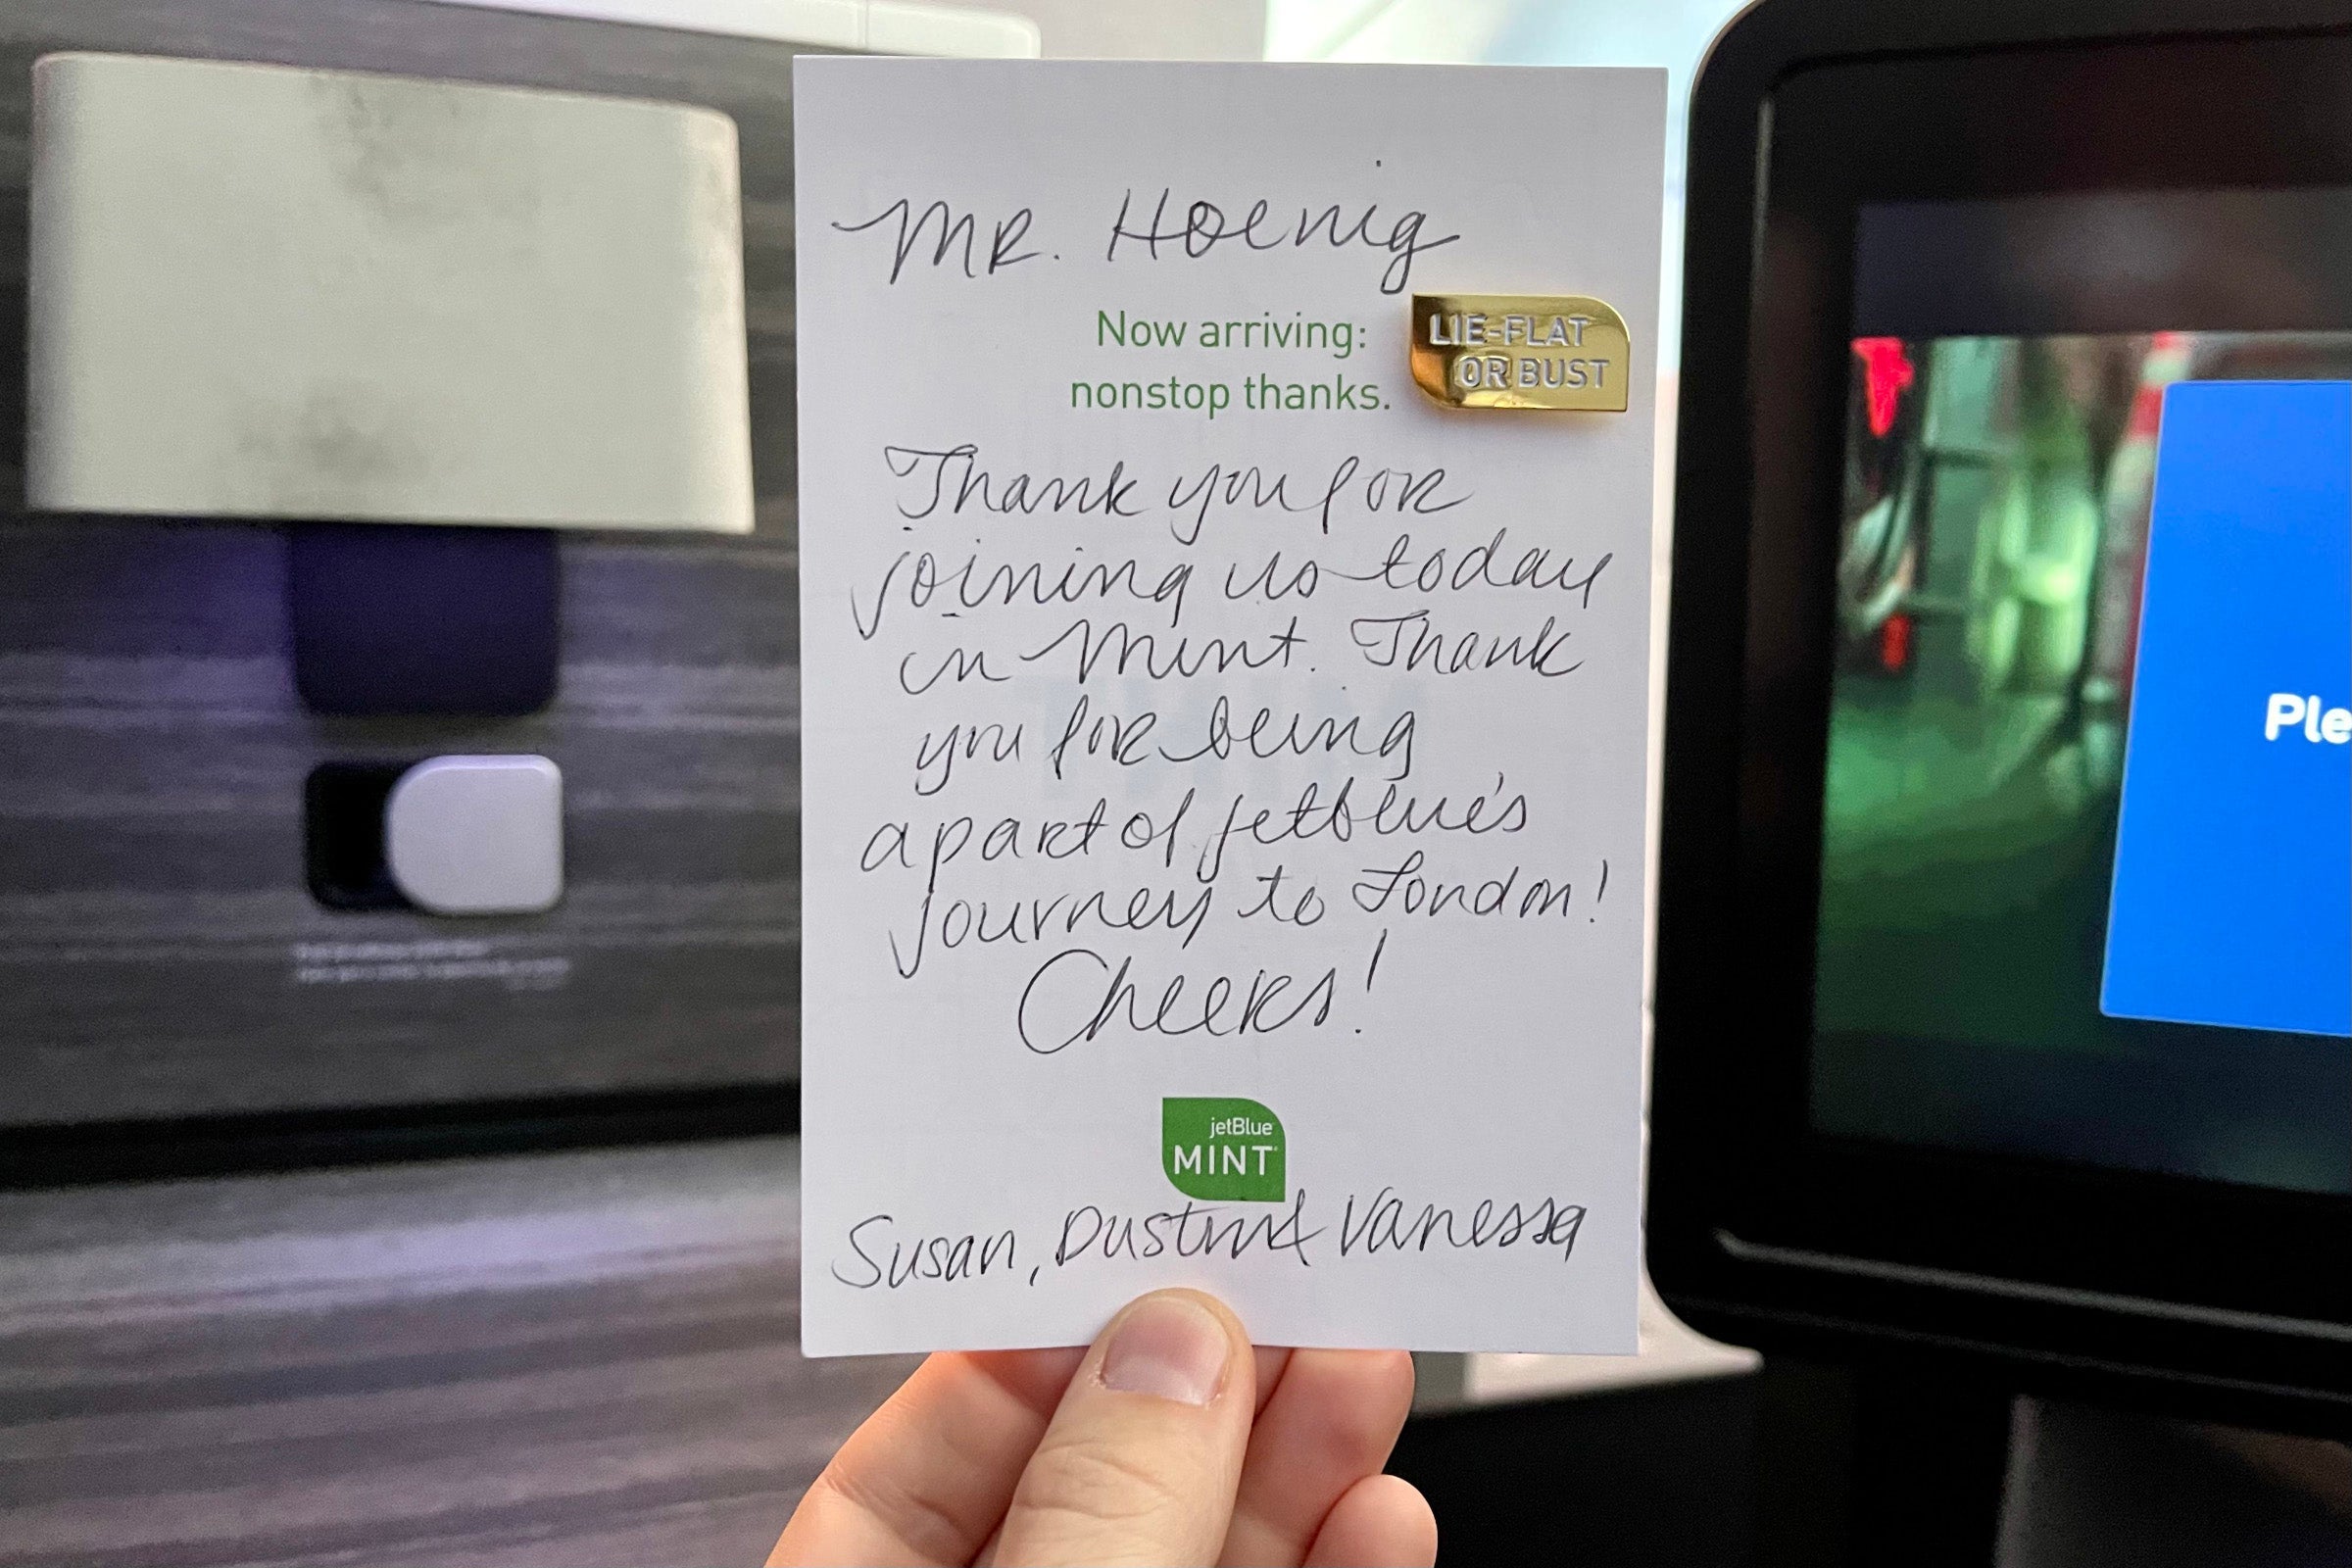 MR. Hoenig
Now arriving:
nonstop thanks.
LIE-FLAT
OR BUST
Thank you for
joining us today
in Mint. Thank
you for being
a part of jetblue's
journey to London!
Cheers!
jetBlue
MINT
Susan, Dustin & Vanessa
Ple